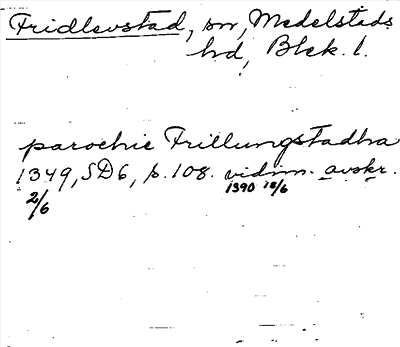 Fridlevstad, sn, Medelstads
hd, Blek. l.
parochie Frillungstadha
1349, SD6, p. 108. vidim. avskr.
2/6 1390 18/6